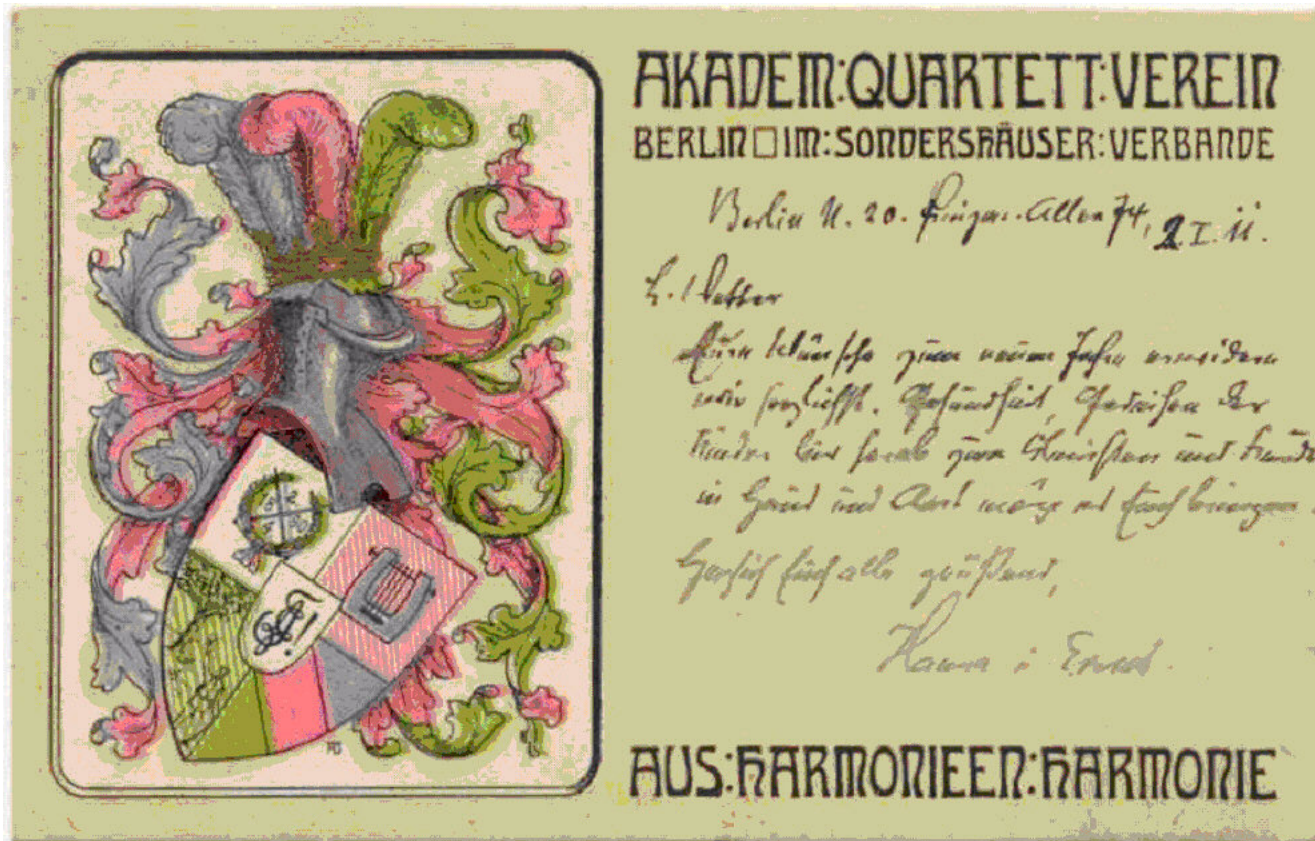 AKADEM:QUARTETT:VEREIN
BERLIN□IM:SONDERSHÄUSER:VERBANDE
Berlin N. 20. Allee 74, 2.I.11.
L. Vetter
Eure Wünsche zum neuen Jahre erwidern
wir herzlichst. Gesundheit, Gedeihen der
Kinder bis herab zum Kleinsten und Freude
in Haus und Amt möge es Euch bringen
Herzlich Euch alle grüßend,
Hanna
AUS:HARMONIEEN:HARMONIE